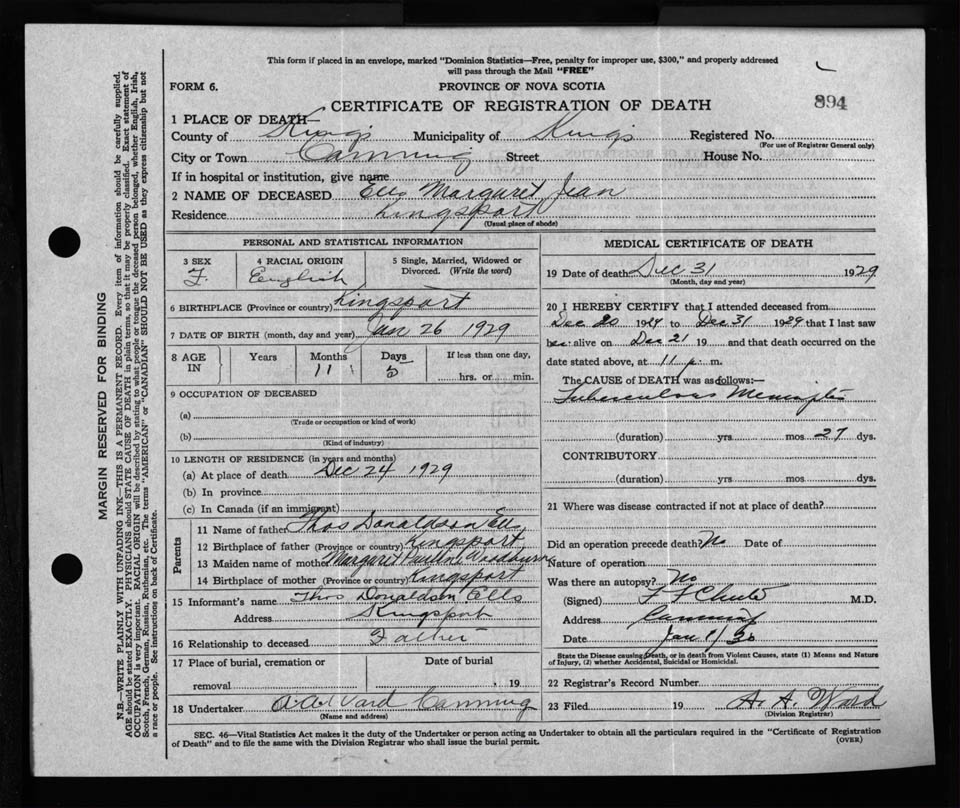 This form if placed in an envelope, marked "Dominion Statistics—Free, penalty for improper use, $300," and properly addressed
will pass through the Mail "FREE"
FORM 6. PROVINCE OF NOVA SCOTIA
CERTIFICATE OF REGISTRATION OF DEATH 894
1 PLACE OF DEATH—
County of Kings Municipality of Kings Registered No.
(For use of Registrar General only)
City or Town Canning Street House No.
If in hospital or institution, give name
2 NAME OF DECEASED Ells Margaret Jean
Residence Kingsport
(Usual place of abode)
PERSONAL AND STATISTICAL INFORMATION
3 SEX 4 RACIAL ORIGIN 5 Single, Married, Widowed or
Divorced. (Write the word)
F. English
6 BIRTHPLACE (Province or country) Kingsport
7 DATE OF BIRTH (month, day and year) Jan 26 1929
8 AGE IN Years Months Days If less than one day,
11 5 hrs. or min.
9 OCCUPATION OF DECEASED
(a)
(Trade or occupation or kind of work)
(b)
(Kind of industry)
10 LENGTH OF RESIDENCE (in years and months)
(a) At place of death Dec 24 1929
(b) In province
(c) In Canada (if an immigrant)
Parents
11 Name of father Thos Donaldson Ells
12 Birthplace of father (Province or country) Kingsport
13 Maiden name of mother Margaret
14 Birthplace of mother (Province or country) Kingsport
15 Informant's name Thos Donaldson Ells
Address Kingsport
16 Relationship to deceased Father
17 Place of burial, cremation or Date of burial
removal 19
18 Undertaker A. A. Ward Canning
(Name and address)
MEDICAL CERTIFICATE OF DEATH
19 Date of death: Dec 31 1929
(Month, day and year)
20 I HEREBY CERTIFY that I attended deceased from
Dec 20 1929 to Dec 31 1929 that I last saw
her alive on Dec 21 19 and that death occurred on the
date stated above, at 11 p. m.
The CAUSE of DEATH was as follows:—
Tuberculous Meningitis
(duration) yrs mos 27 dys.
CONTRIBUTORY
(duration) yrs mos dys.
21 Where was disease contracted if not at place of death?
Did an operation precede death? No Date of
Nature of operation
Was there an autopsy? No
(Signed) M.D.
Address Canning
Date Jan 1/30
State the Disease causing Death, or in death from Violent Causes, state (1) Means and Nature
of Injury, (2) whether Accidental, Suicidal or Homicidal.
22 Registrar's Record Number
23 Filed 19 A. A. Ward
(Division Registrar)
SEC. 46—Vital Statistics Act makes it the duty of the Undertaker or person acting as Undertaker to obtain all the particulars required in the "Certificate of Registration
of Death" and to file the same with the Division Registrar who shall issue the burial permit. (OVER)
MARGIN RESERVED FOR BINDING
N.B.—WRITE PLAINLY WITH UNFADING INK—THIS IS A PERMANENT RECORD. Every item of information should be carefully supplied.
AGE should be stated EXACTLY. PHYSICIANS should STATE CAUSE OF DEATH in plain terms, so that it may be properly classified. Exact statement of
OCCUPATION is very important. RACIAL ORIGIN will be described by stating to what people or tongue the deceased person belonged, whether English, Irish,
Scotch, French, German, Russian, Ruthenian, etc. The terms "AMERICAN" or "CANADIAN" SHOULD NOT BE USED as they express citizenship but not
a race or people. See instructions on back of Certificate.